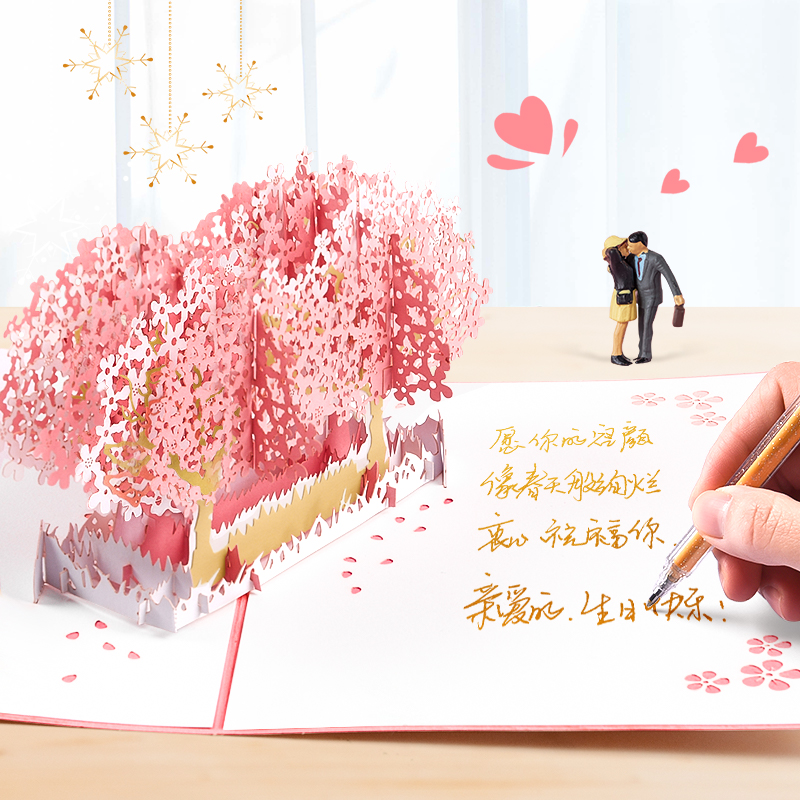 愿你的容颜
像春天般绚烂
衷心祝福你.
亲爱的.生日快乐!